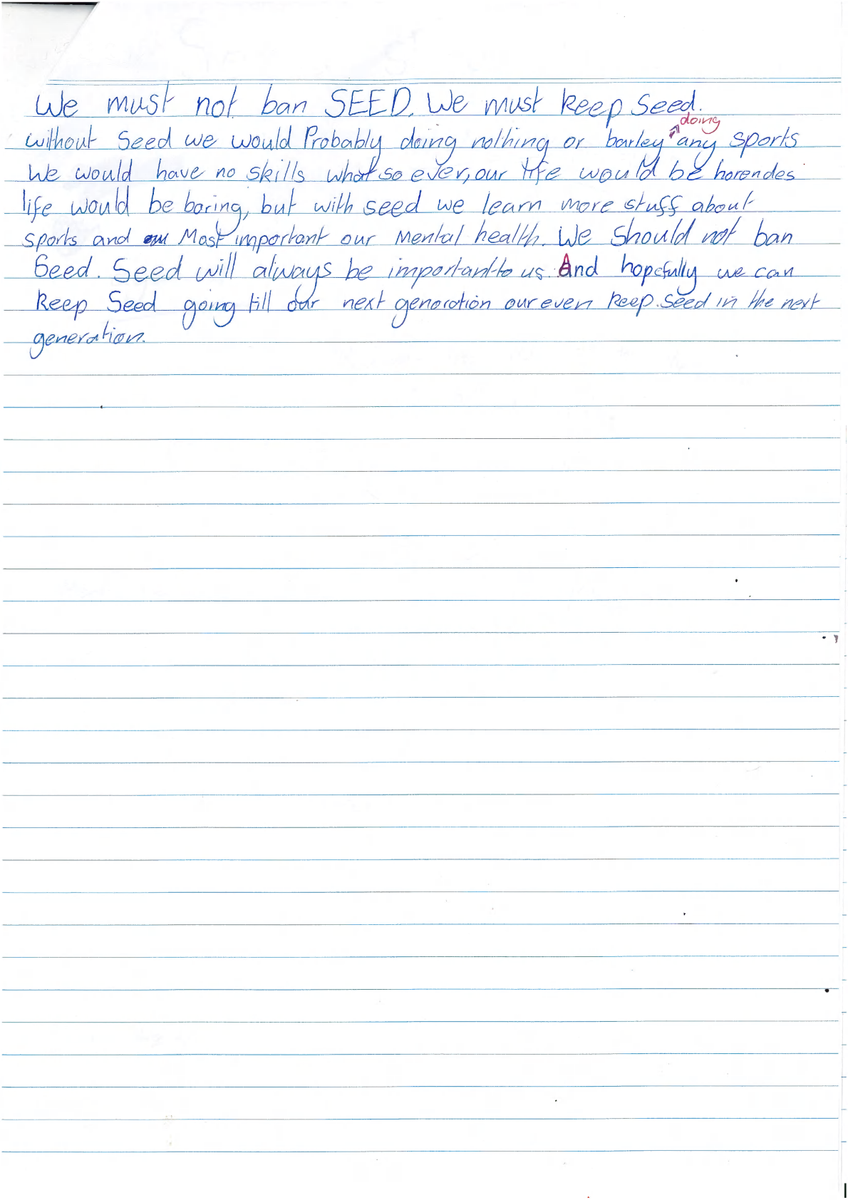 We must not ban SEED. We must keep Seed.
doing
without Seed we would Probably doing nothing or barley any sports
We would have no skills what so ever, our life would be horendes
life would be boring, but with seed we learn more stuff about
sports and Most important our Mental health. We should not ban
Seed. Seed will always be important to us. And hopefully we can
keep Seed going till our next generation our even keep seed in the next
generation.